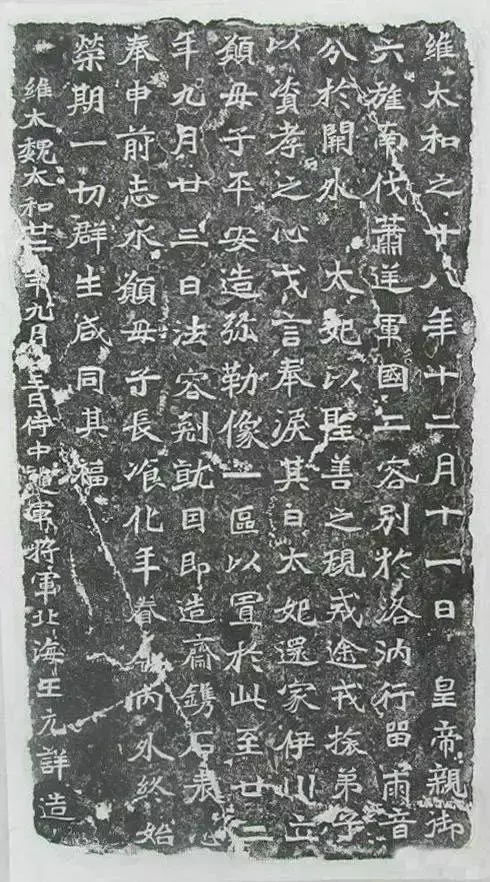 維太和之十八年十二月十一日 皇帝親御
六旌南伐蕭逆軍國二容別於洛汭行留兩音
分於闕外 太妃以聖善之規戒途戒旅弟子
以資孝之心戈言奉淚其日太妃還家伊川立
願母子平安造弥勒像一區以置於此至廿二
年九月廿三日法容剋就因即造齋鐫石表心
奉申前志永願母子長飡化年眷屬内外終始
榮期一切群生咸同其福
維太魏太和廿二年九月廿三日侍中護軍將軍北海王元詳造